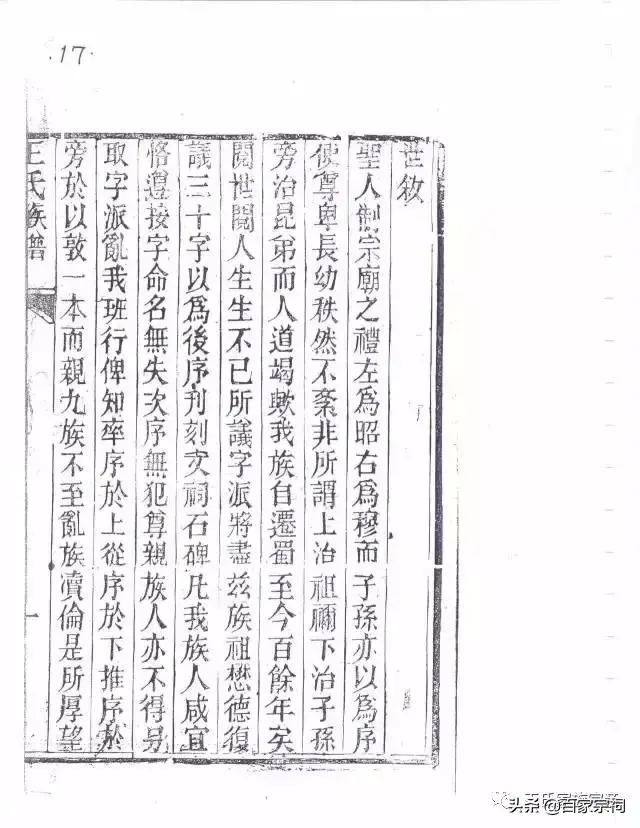 17
世敘
聖人制宗廟之禮左爲昭右爲穆而子孫亦以爲序
使尊卑長幼秩然不紊非所謂上治祖禰下治子孫
旁治昆弟而人道竭歟我族自遷蜀至今百餘年矣
閱世閱人生生不已所議字派將盡兹族祖懋德復
議三十字以爲後序刊刻文祠石碑凡我族人咸宜
恪遵按字命名無失次序無犯尊親族人亦不得另
取字派亂我班行俾知率序於上從序於下推序於
旁於以敦一本而親九族不至亂族瀆倫是所厚望
王氏族譜
一
王氏家族家音
头条@百家宗祠